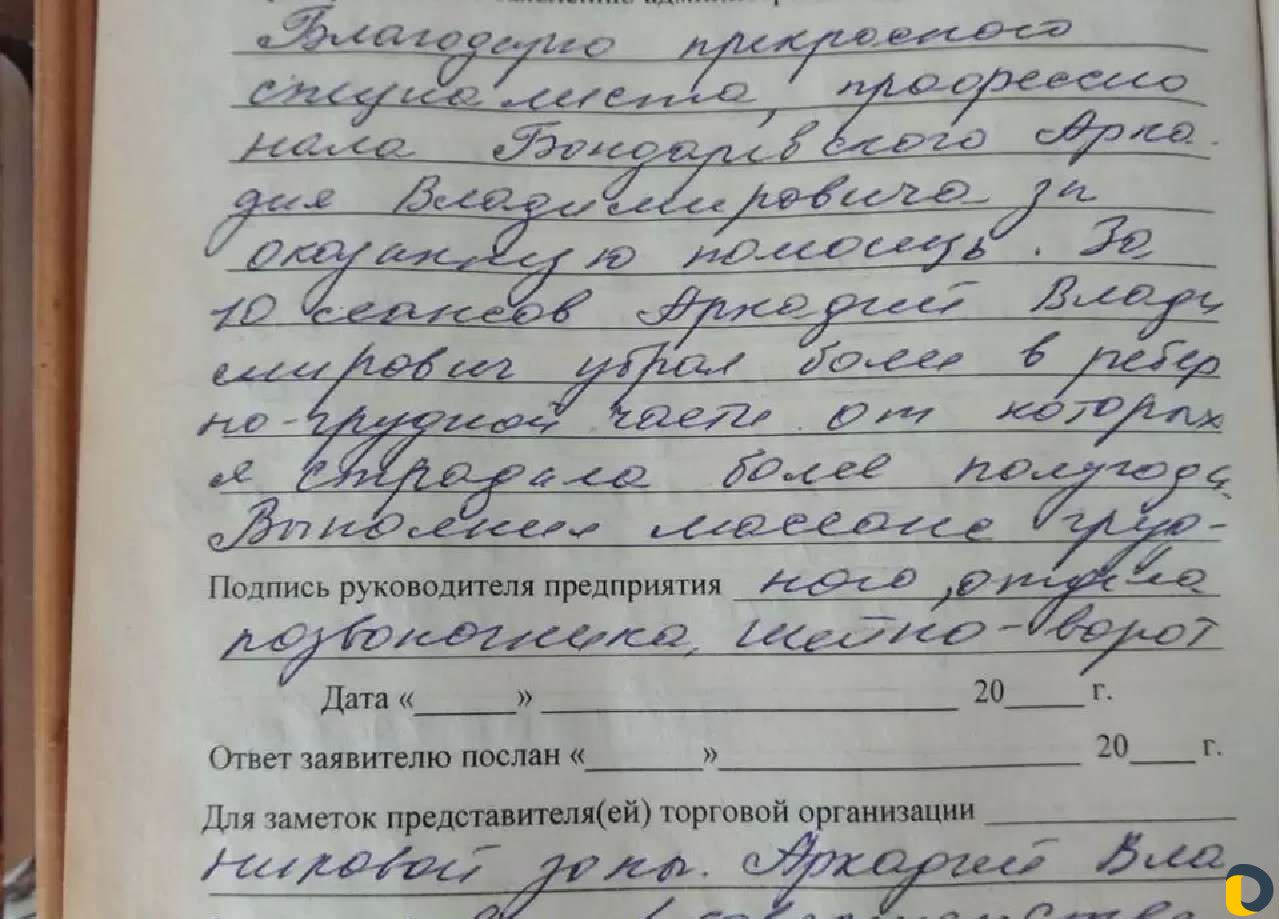 Благодарю прекрасного
специалиста, профессио
нала Бондаревского Арка-
дия Владимировича за
оказанную помощь. За
10 сеансов Аркадий Влади
мирович убрал боли в ребер
но-грудной части от которых
я страдала более полугода.
Выполнил массаж груд-
Подпись руководителя предприятия ного, отдела
позвоночника, шейно-ворот
Дата «______» ______ 20____ г.
Ответ заявителю послан «______» ______ 20____ г.
Для заметок представителя(ей) торговой организации ______
никовой зоны. Аркадий Вла